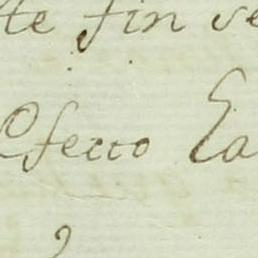 te fin se
efecto La